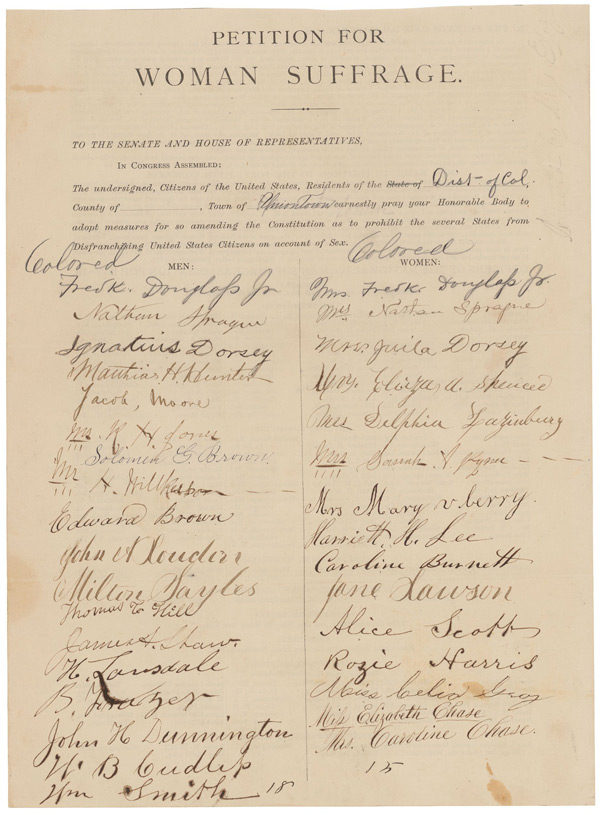 PETITION FOR
WOMAN SUFFRAGE.
TO THE SENATE AND HOUSE OF REPRESENTATIVES,
IN CONGRESS ASSEMBLED:
The undersigned, Citizens of the United States, Residents of the State of Dist- of Col,
County of , Town of Uniontown earnestly pray your Honorable Body to
adopt measures for so amending the Constitution as to prohibit the several States from
Disfranchising United States Citizens on account of Sex.
Colored
MEN:
Fredk. Douglass Jr
Nathan Sprague
Ignatius Dorsey
Matthias H. Hunter
Jacob, Moore
Mr. H. Jones
Solomon G. Brown
Mr H. Hill
Edward Brown
John A Loudon
Milton Sayles
Thomas T. Hill
James H. Shaw.
H. Lansdale
B. Frazer
John H Dunnington
W B Cudlip
Wm Smith 18
Colored
WOMEN:
Mrs. Fredk. Douglass Jr.
Mrs Nathan Sprague
Mrs. Juila Dorsey
Mrs. Elieza A. Spencer
Mrs Delphia
Mrs Sarah
Mrs Mary V. berry.
Harriett. H. Lee
Caroline Burnett
Jane Lawson
Alice Scott
Rozie Harris
Miss Celia Gray
Miss Elizabeth Chase
Mrs. Caroline Chase.
15